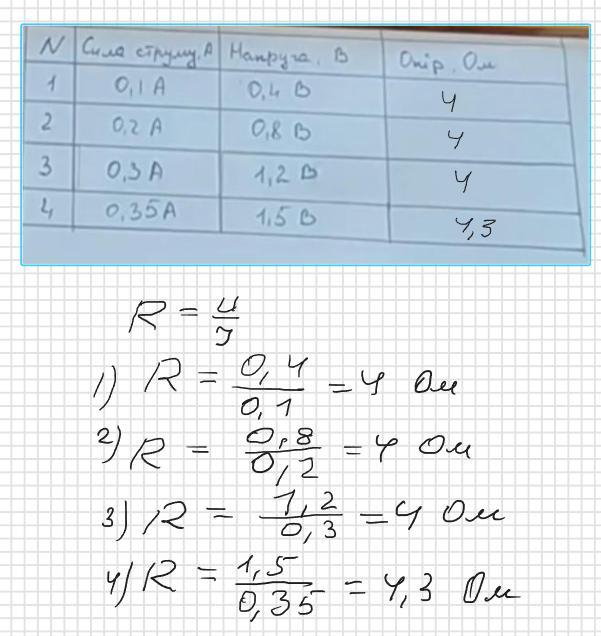 N Сила струму, А Напруга, В Опір, Ом
1 0,1 А 0,4 В 4
2 0,2 А 0,8 В 4
3 0,3 А 1,2 В 4
4 0,35 А 1,5 В 4,3
R = U/I
1) R = 0,4/0,1 = 4 Ом
2) R = 0,8/0,2 = 4 Ом
3) R = 1,2/0,3 = 4 Ом
4) R = 1,5/0,35 = 4,3 Ом